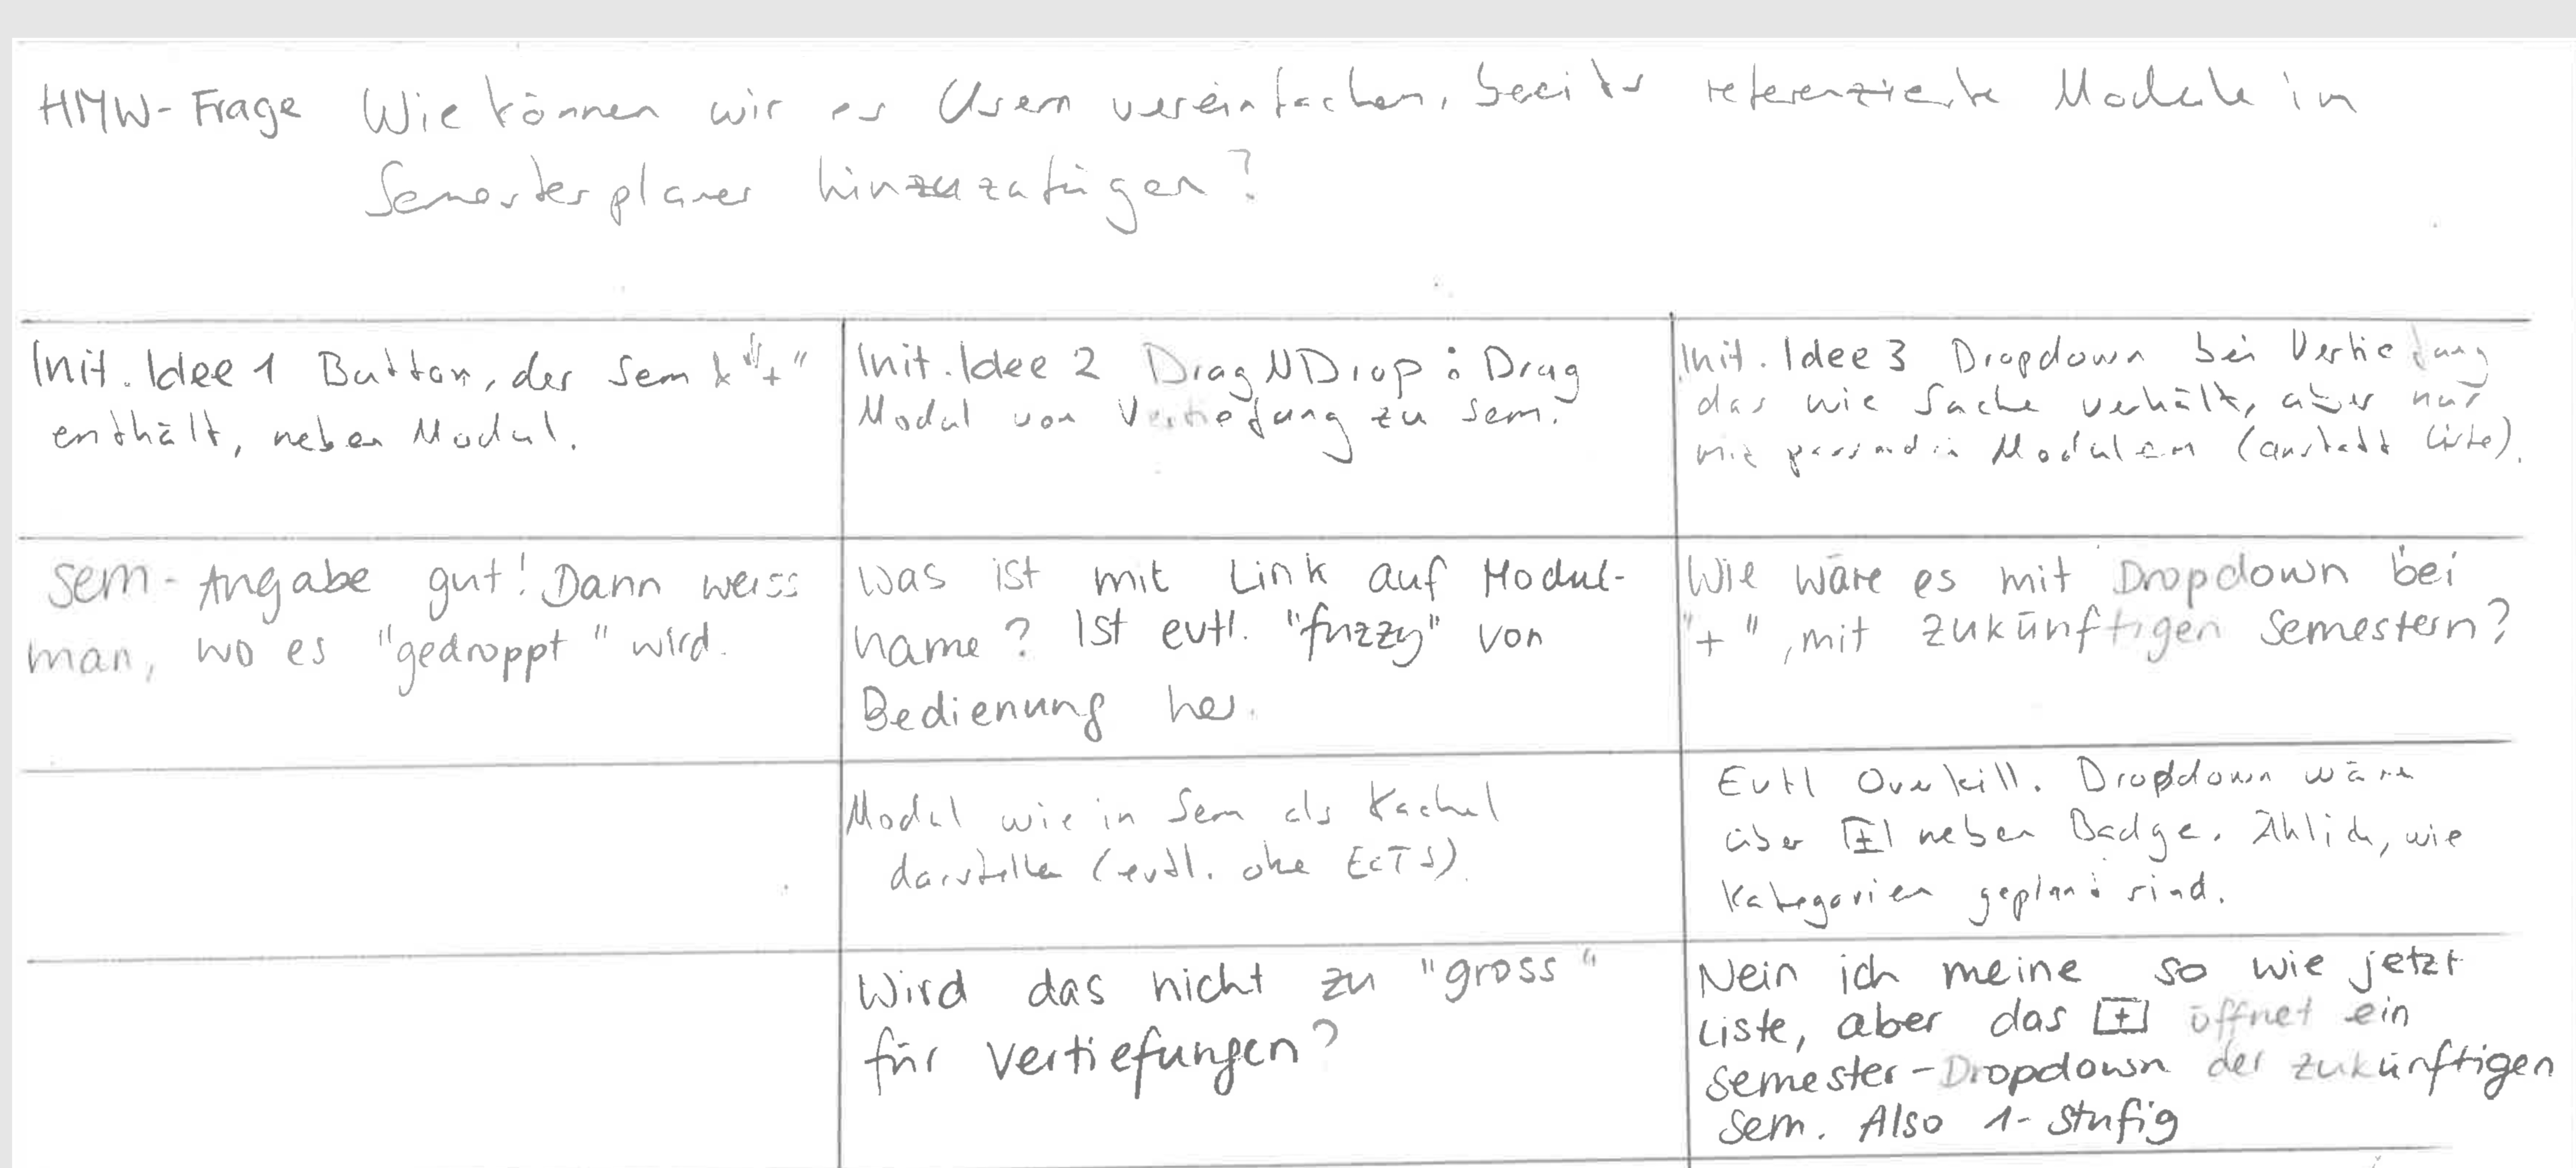 HMW-Frage Wie können wir es Usern vereinfachen, bereits referenzierte Module in
Semesterplaner hinzuzufügen?
Init. Idee 1 Button, der Sem & "+"
enthält, neben Modul.
Init. Idee 2 DragNDrop: Drag
Modul von Vertiefung zu Sem.
Init. Idee 3 Dropdown bei Vertiefung
das wie Suche verhält, aber nur
mit passenden Modulen (anstatt Liste).
Sem-Angabe gut! Dann weiss
man, wo es "gedroppt" wird.
Was ist mit Link auf Modul-
name? Ist evtl. "fuzzy" von
Bedienung her.
Wie wäre es mit Dropdown bei
"+", mit zukünftigen Semestern?
Modul wie in Sem als Kachel
darstellen (evtl. ohne ECTS).
Evtl Overkill. Dropdown wäre
über [+] neben Badge. Ählich, wie
Kategorien geplant sind.
Wird das nicht zu "gross"
für Vertiefungen?
Nein ich meine so wie jetzt
Liste, aber das [+] öffnet ein
Semester-Dropdown der zukünftigen
Sem. Also 1-stufig